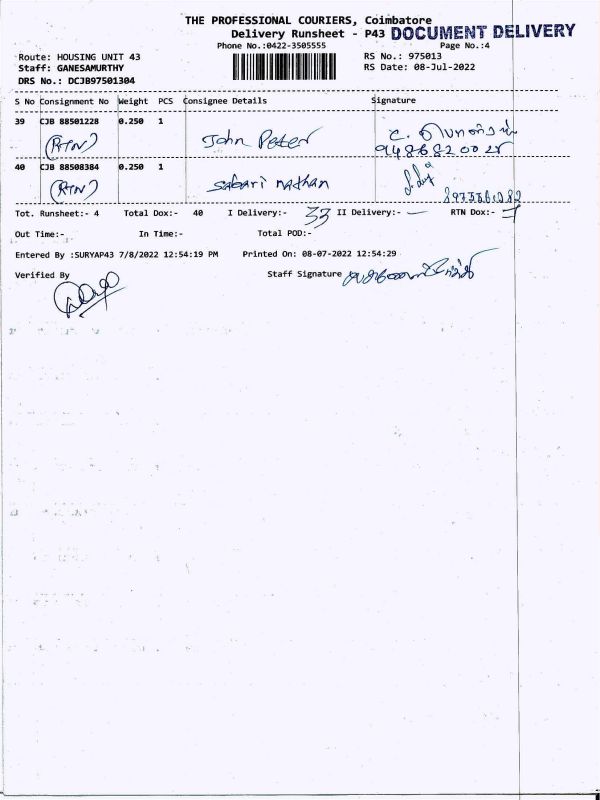 THE PROFESSIONAL COURIERS, Coimbatore
Delivery Runsheet - P43 DOCUMENT DELIVERY
Phone No.:0422-3505555 Page No.:4
Route: HOUSING UNIT 43 RS No.: 975013
Staff: GANESAMURTHY RS Date: 08-Jul-2022
DRS No.: DCJB97501304
S No Consignment No Weight PCS Consignee Details Signature
39 CJB 88501228 0.250 1
(RTN) John Peter
9486820025
40 CJB 88508384 0.250 1
(RTN) Sabari nathan
Tot. Runsheet:- 4 Total Dox:- 40 I Delivery:- 33 II Delivery:- — RTN Dox:- 7
Out Time:- In Time:- Total POD:-
Entered By :SURYAP43 7/8/2022 12:54:19 PM Printed On: 08-07-2022 12:54:29
Verified By Staff Signature